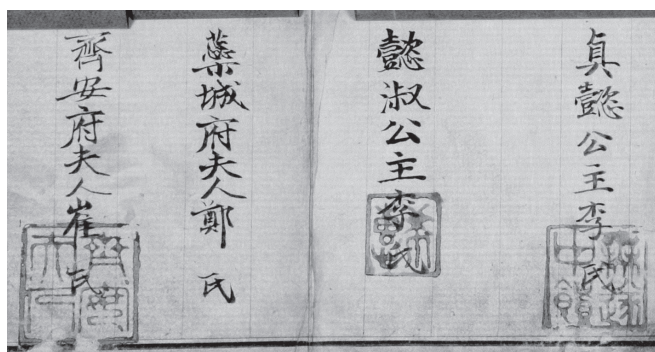 貞懿公主李氏
懿淑公主李氏
蘂城府夫人鄭氏
齊安府夫人崔氏